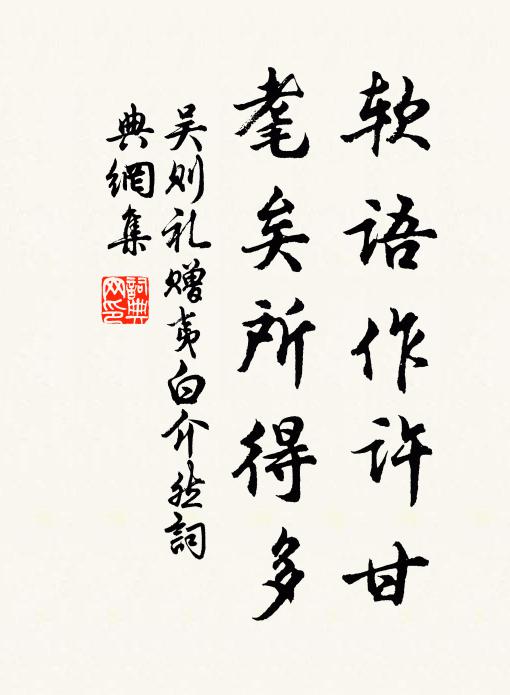 软语作许甘
耄矣所得多
吴则礼赠夷白介然詞
典網集
詞典
网印